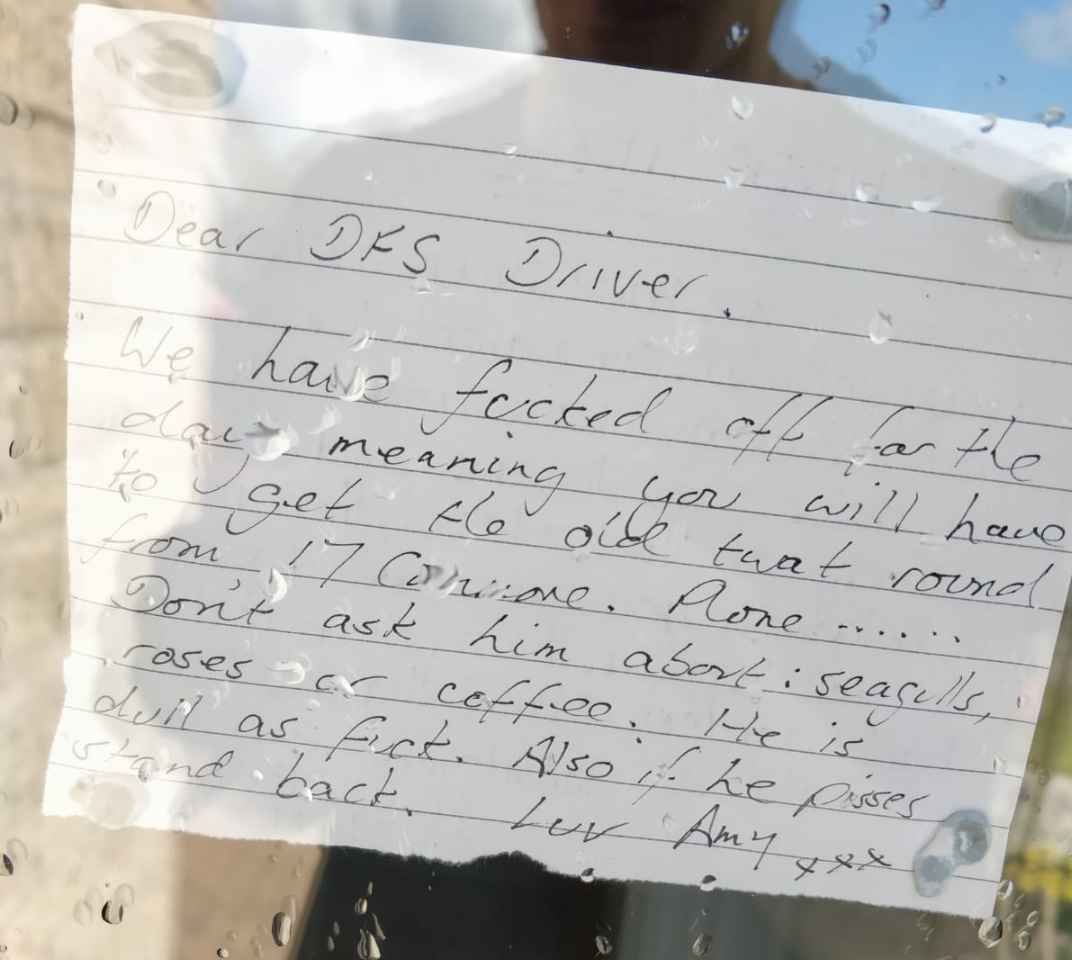 Dear DFS Driver.
We have fucked off for the
day meaning you will have
to get the old twat round
from 17 Cornmore. Plone ......
Don't ask him about: seagulls,
roses or coffee. He is
dull as fuck. Also if he pisses
stand back. Luv Amy xxx